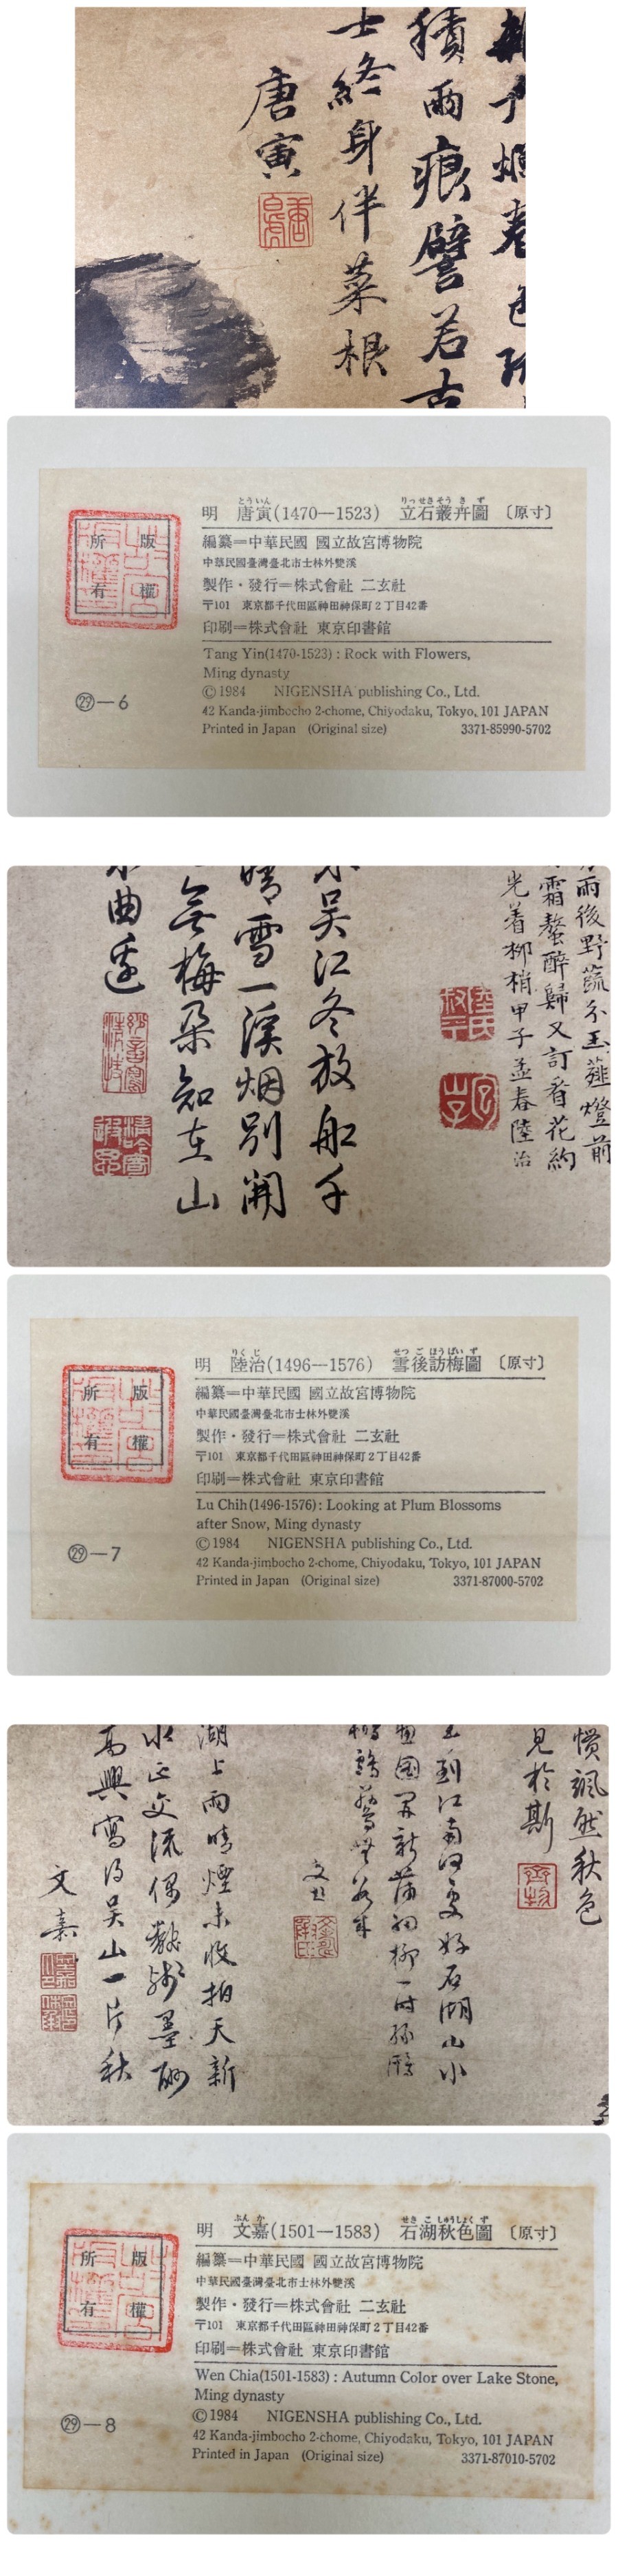 積雨痕譬若古
士終身伴菜根
唐寅
版權所有
㉙—6
とういん りっせきそうきず
明 唐寅(1470—1523) 立石叢卉圖 〔原寸〕
編纂=中華民國 國立故宮博物院
中華民國臺灣臺北市士林外雙溪
製作・發行=株式會社 二玄社
〒101 東京都千代田區神田神保町2丁目42番
印刷=株式會社 東京印書館
Tang Yin(1470-1523) : Rock with Flowers,
Ming dynasty
©1984 NIGENSHA publishing Co., Ltd.
42 Kanda-jimbocho 2-chome, Chiyodaku, Tokyo, 101 JAPAN
Printed in Japan (Original size) 3371-85990-5702
雨後野蔬分玉薤燈前
霜螯醉歸又訂看花約
光着柳梢甲子孟春陸治
吳江冬放船千
晴雪一溪烟別開
無梅朶知在山
曲逢
版權所有
㉙—7
りくじ せつごほうばいず
明 陸治(1496—1576) 雪後訪梅圖 〔原寸〕
編纂=中華民國 國立故宮博物院
中華民國臺灣臺北市士林外雙溪
製作・發行=株式會社 二玄社
〒101 東京都千代田區神田神保町2丁目42番
印刷=株式會社 東京印書館
Lu Chih(1496-1576) : Looking at Plum Blossoms
after Snow, Ming dynasty
©1984 NIGENSHA publishing Co., Ltd.
42 Kanda-jimbocho 2-chome, Chiyodaku, Tokyo, 101 JAPAN
Printed in Japan (Original size) 3371-87000-5702
颯然秋色
見於斯
到江南何處好石湖山水
國最新蒲細柳一時
湖上雨晴煙未收拍天新
水正交流偶
高興寫得吳山一片秋
文嘉
版權所有
㉙—8
ぶんか せきこしゅうしょくず
明 文嘉(1501—1583) 石湖秋色圖 〔原寸〕
編纂=中華民國 國立故宮博物院
中華民國臺灣臺北市士林外雙溪
製作・發行=株式會社 二玄社
〒101 東京都千代田區神田神保町2丁目42番
印刷=株式會社 東京印書館
Wen Chia(1501-1583) : Autumn Color over Lake Stone,
Ming dynasty
©1984 NIGENSHA publishing Co., Ltd.
42 Kanda-jimbocho 2-chome, Chiyodaku, Tokyo, 101 JAPAN
Printed in Japan (Original size) 3371-87010-5702